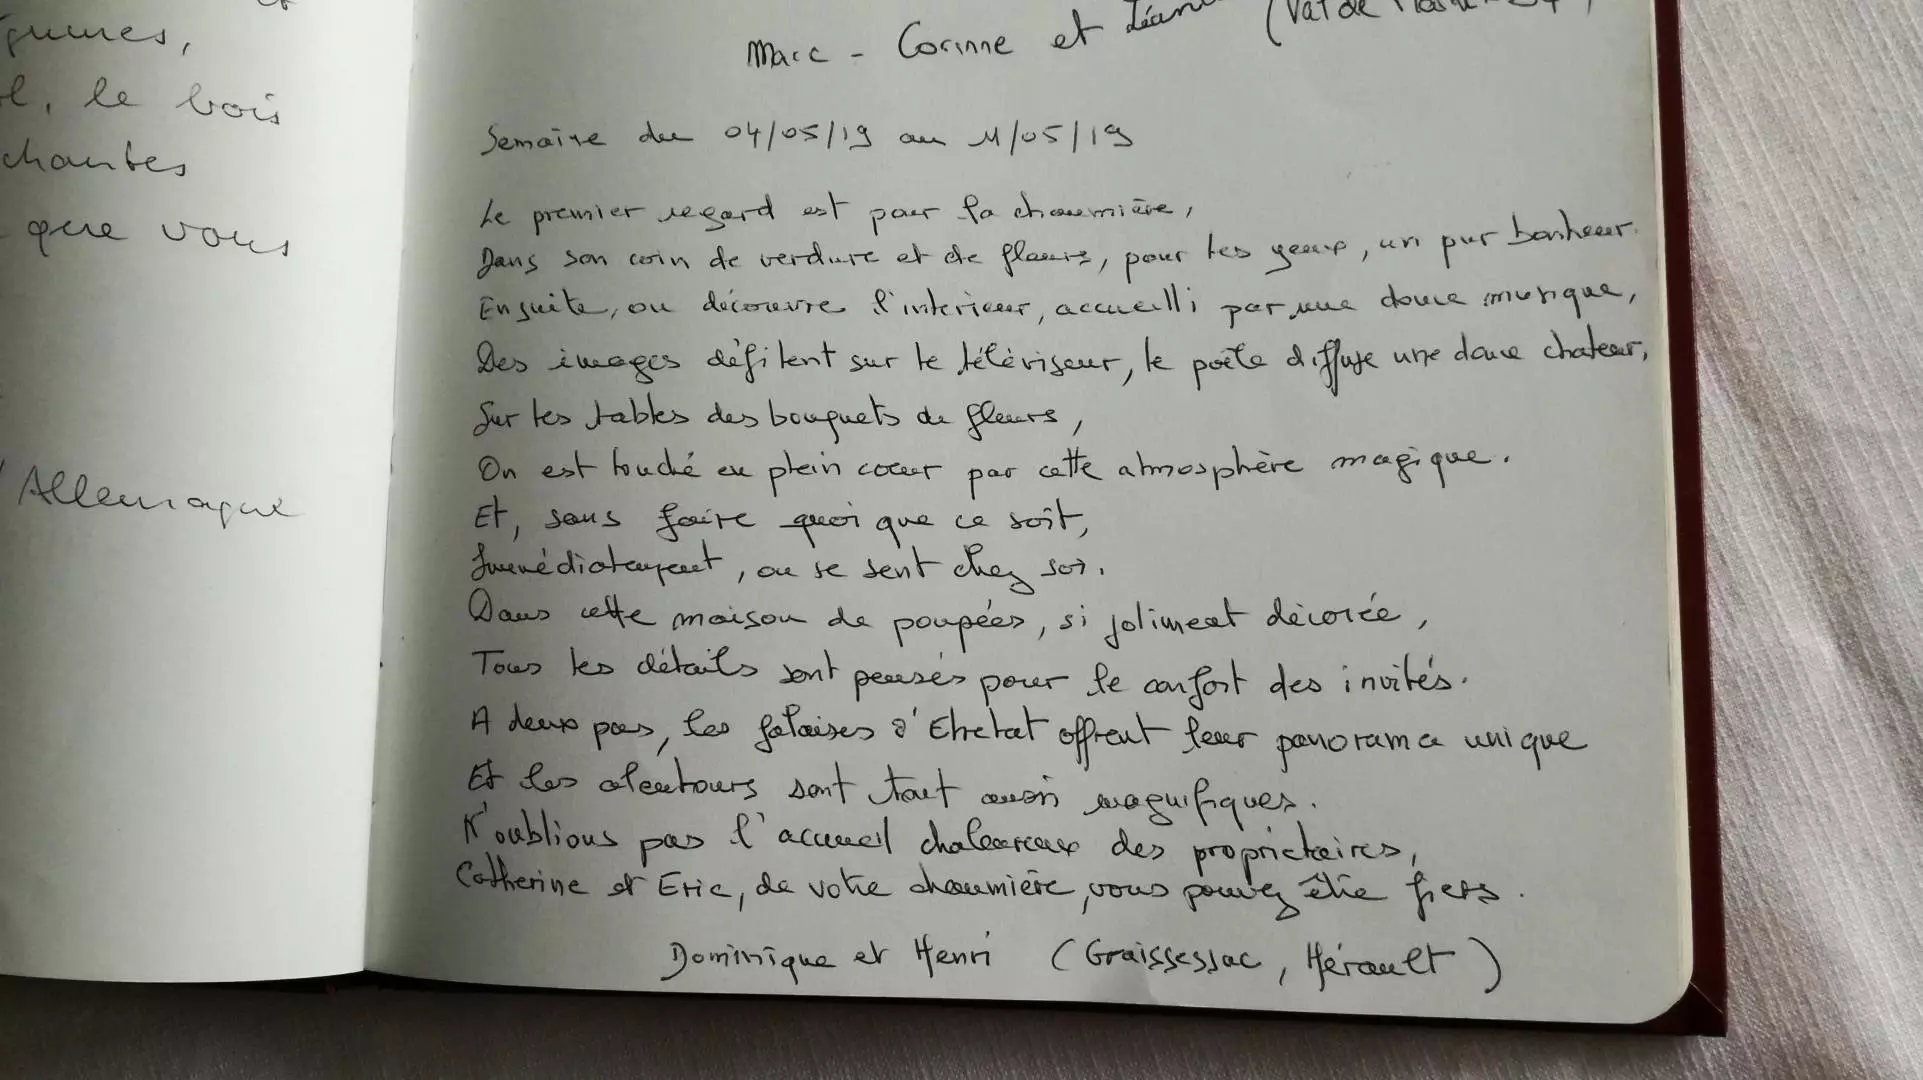 gumes,
le bois
chantes
que vous
Allemagne
Marc - Corinne et Léan
(Val de
Semaine du 04/05/19 au 11/05/19
Le premier regard est pour la chaumière,
Dans son coin de verdure et de fleurs, pour les yeux, un pur bonheur.
Ensuite, on découvre l'interieur, accueilli par une douce musique,
Des images défilent sur le téléviseur, le poële diffuse une douce chaleur,
Sur les tables des bouquets de fleurs,
On est touché en plein coeur par cette atmosphère magique.
Et, sans faire quoi que ce soit,
Immédiatement, on se sent chez soi.
Dans cette maison de poupées, si joliment décorée,
Tous les détails sont pensés pour le confort des invités.
A deux pas, les falaises d'Etretat offrent leur panorama unique
Et les alentours sont tout aussi magnifiques.
N'oublions pas l'accueil chaleureux des propriétaires,
Catherine et Eric, de votre chaumière, vous pouvez être fiers.
Dominique et Henri (Graissessac, Hérault)